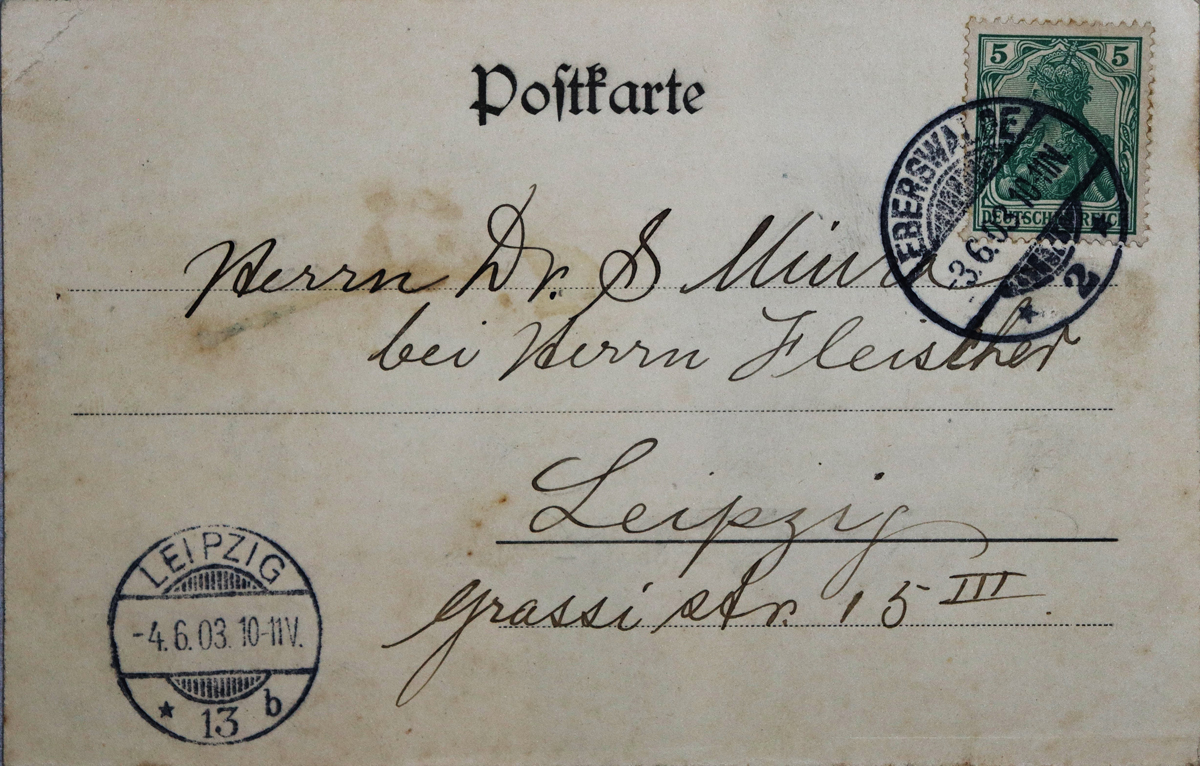 Postkarte
5 5
DEUTSCHES REICH
EBERSWALDE
3.6.03. 10-11N.
* 2 *
Herrn Dr. S
bei Herrn Fleischer
Leipzig
Grassi str. 15 III
LEIPZIG
-4.6.03. 10-11V.
* 13 b